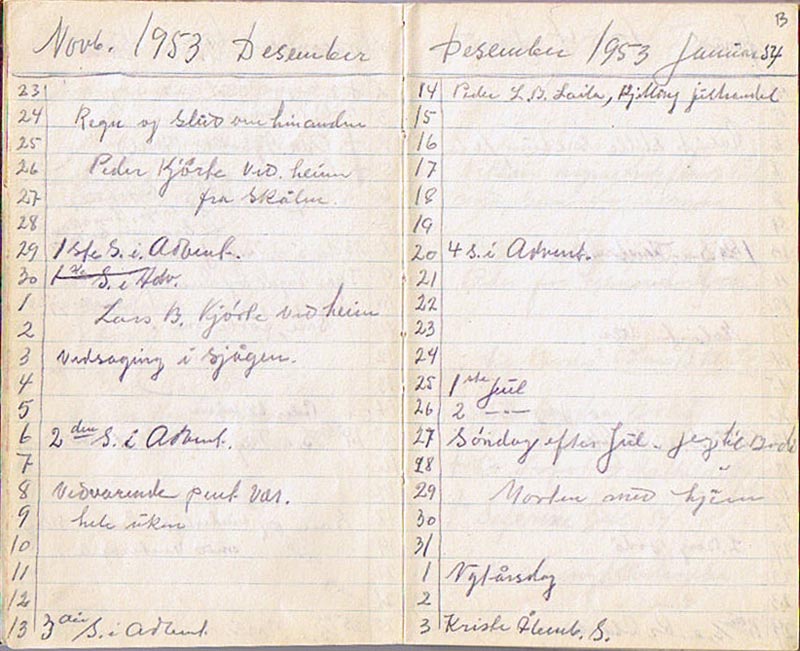 Novb. 1953 Desember
23
24 Regn og Slud om hinanden
25
26 Peder Kjörte Ved. heim
27 fra Skålm.
28
29 1ste S. i Advent.
30 1ste S. i Adv.
1 Lars B. Kjörte Ved heim
2
3 Vedsaging i Sjågen.
4
5
6 2den S. i Advent.
7
8 Vedvarende pent Vær.
9 hele üken
10
11
12
13 3die S. i Advent
B
Desember 1953 Januar 54
14 Peder L. B. Laila, julhandel
15
16
17
18
19
20 4 S. i Advent.
21
22
23
24
25 1ste Jül
26 2 — —
27 Søndag efter Jül. Jeg til
28
29 Morten med hjem
30
31
1 Nytårsdag
2
3 Kriste Åbenb. S.